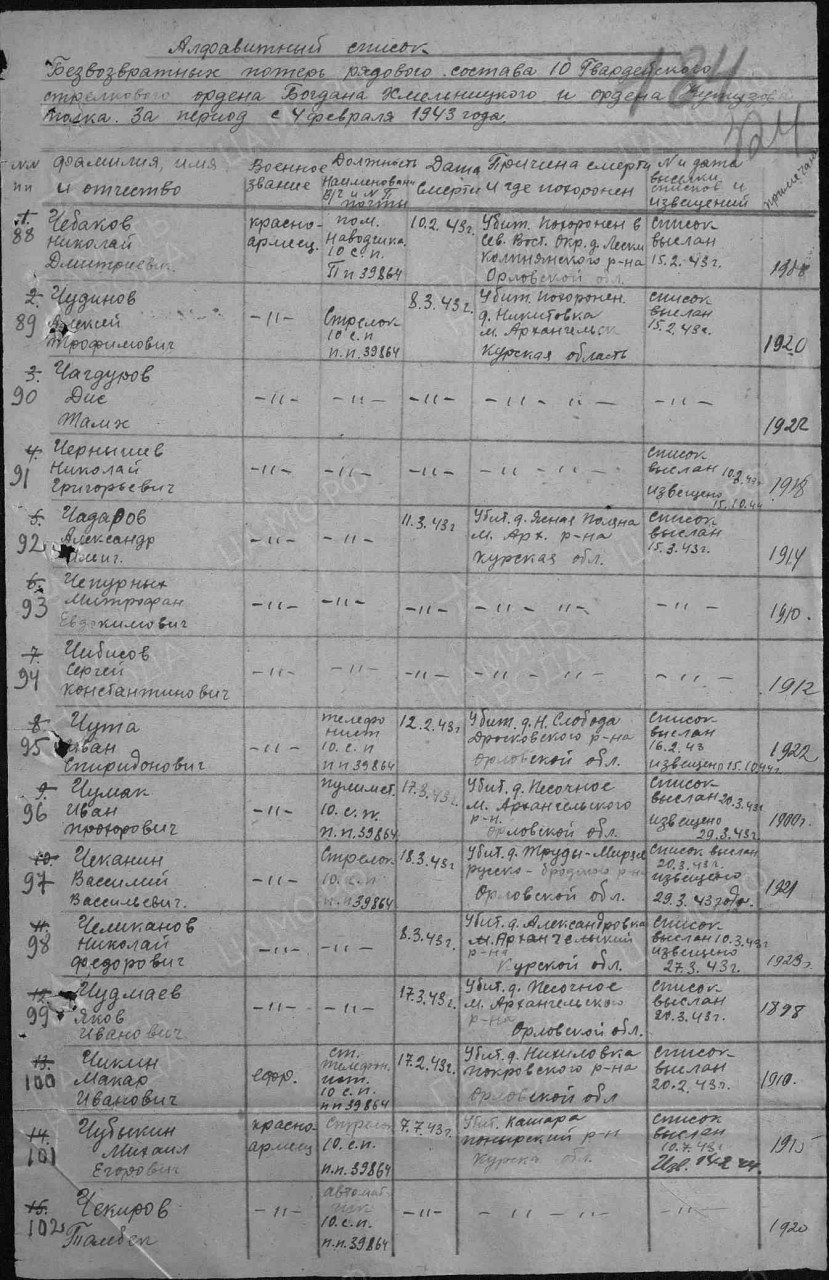 Алфавитный список
Безвозвратных потерь рядового состава 10 Гвардейского
стрелкового ордена Богдана Хмельницкого и ордена
полка. За период с 4 февраля 1943 года
NN пп
фамилия, имя и отчество
Военное звание
Должность Наименован. В/ч и N П. почты
Дата смерти
Причина смерти и где похоронен
N и дата высылки списков и извещений
примечан
1. 88
Чебаков Николай Дмитриевич
красноармеец
пом. Наводчика 10 с.п. Пп 39864
10.2.43г.
Убит. Похоронен в Сев. Вост. Окр. д. Лески Колпнянского р-на Орловской обл.
Список выслан 15.2.43г.
2. 89
Чудинов Алексей Трофимович
-"-
Стрелок 10 с.п п.п. 39864
8.3.43г.
Убит. Похоронен д. Никитовка м. Архангельск Курская область
список выслан 15.2.43г.
1920
3. 90
Чагдуров Дис
-"-
-"-
-"-
-"- -"-
-"-
1922
4. 91
Чернышев Николай Григорьевич
-"-
-"-
-"-
-"- -"-
список выслан извещено 15.10.44
1918
5. 92
Чадаров Александр
-"-
-"-
11.3.43г
Убит. д. Ясная Поляна м. Арх. р-на Курская обл.
Список выслан 15.3.43г.
1914
6. 93
Чепурных Митрофан Евдокимович
-"-
-"-
-"-
-"- -"-
-"-
1910.
7. 94
Чибисов Сергей Константинович
-"-
-"-
-"-
-"- -"-
-"-
1912
8. 95
Чута Иван Спиридонович
-"-
телефонист 10.с.п п.п 39864
12.2.43г
Убит. д. Н. Слобода Дросковского р-на Орловской обл.
Список выслан 16.2.43 извещено 15.10.44г
1922
9. 96
Чумак Иван Прохорович
-"-
пулимет. 10.с.п. п.п. 39864
17.3.43г.
Убит. д. Песочное м. Архангельского р-н. Орловской обл.
Список выслан 20.3.43г извещено 29.3.43г.
1900г.
10. 97
Чеканин Вассилий Васильевич.
-"-
Стрелок 10.с.п. п.п 39864
18.3.43г
Убит. д. Труды-Мирзе русско-бродского р-на Орловской обл.
Список выслан 20.3.43г. извещено 29.3.43 годн.
1921
11. 98
Челиканов Николай Федорович
-"-
-"-
8.3.43г.
Убит. д. Александровка м. Архангельский р-на Курской обл.
Список выслан 10.3.43г извещено 27.3.43г.
12. 99
Чудмаев Яков Иванович
-"-
-"-
17.3.43г.
Убит. д. Песочное м. Архангельского р-на Орловской обл.
Список выслан 20.3.43г.
1898
13. 100
Чикин Макар Иванович
ефр.
ст. телефонист. 10 с.п. пп 39864
17.2.43г.
Убит. д. Нихиловка покровского р-на Орловской обл
Список выслан 20.2.43г.
1910.
14. 101
Чубыкин Михаил Егорович
красноармеец
Стрелок 10.с.п. п.п. 39864
7.7.43г.
Убит. Кашара понырский р-н Курска обл.
Список выслан 10.7.43г
1915
15. 102
Чекиров
-"-
автомат 10.с.п. п.п. 39864
-"-
-"- -"-
-"-
1920